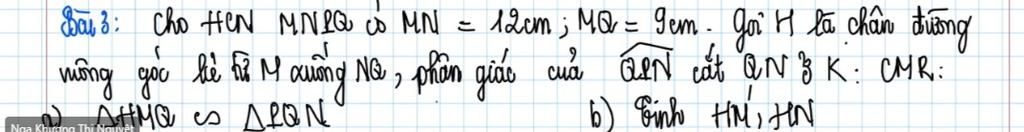 Bài 3: Cho HCN MNPQ có MN = 12cm; MQ = 9cm. Gọi H là chân đường
vuông góc kẻ từ M xuống NQ, phân giác của QPN cắt QN ở K: CMR:
a) ΔHMQ ∽ ΔPQN b) Tính HM, HN
Nga Khương Thị Nguyệt